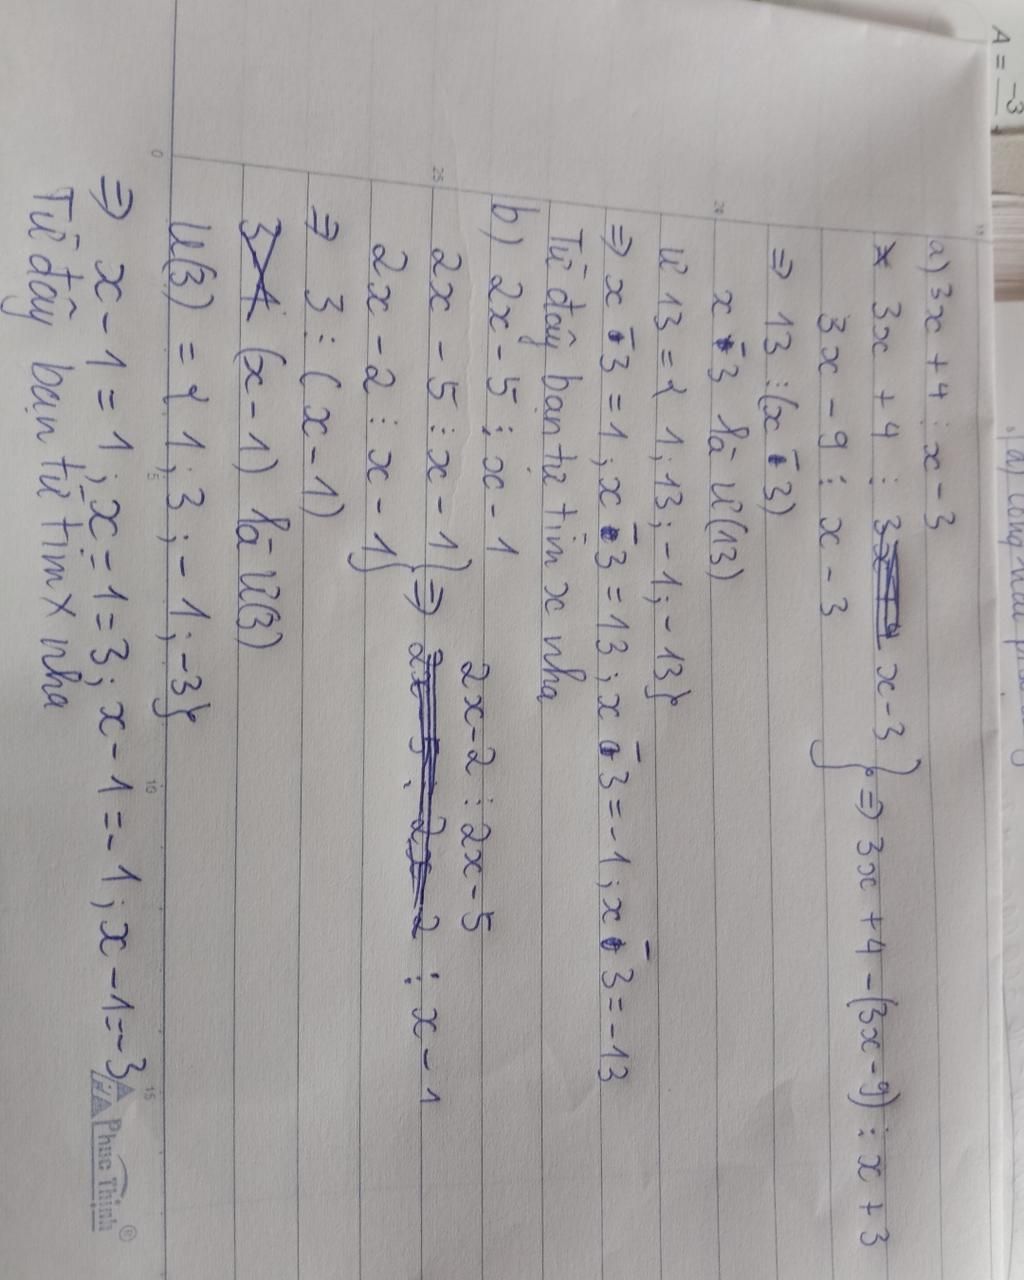 A = -3
a) 3x + 4 ⋮ x - 3
* 3x + 4 ⋮ x - 3 } => 3x + 4 - (3x - 9) ⋮ x + 3
3x - 9 ⋮ x - 3
=> 13 ⋮ (x - 3)
x - 3 là Ư(13)
Ư 13 = { 1; 13; -1; -13}
=> x - 3 = 1; x - 3 = 13; x - 3 = -1; x - 3 = -13
Từ đây bạn tự tìm x nha
b) 2x - 5 ⋮ x - 1
2x - 2 ⋮ 2x - 5
2x - 5 ⋮ x - 1 } => ⋮ x - 1
2x - 2 ⋮ x - 1
=> 3 ⋮ (x - 1)
(x - 1) là Ư(3)
Ư(3) = { 1; 3; -1; -3}
=> x - 1 = 1; x - 1 = 3; x - 1 = -1; x - 1 = -3
Từ đây bạn tự tìm x nha
0
5
10
15
20
25
Phuc Thinh®